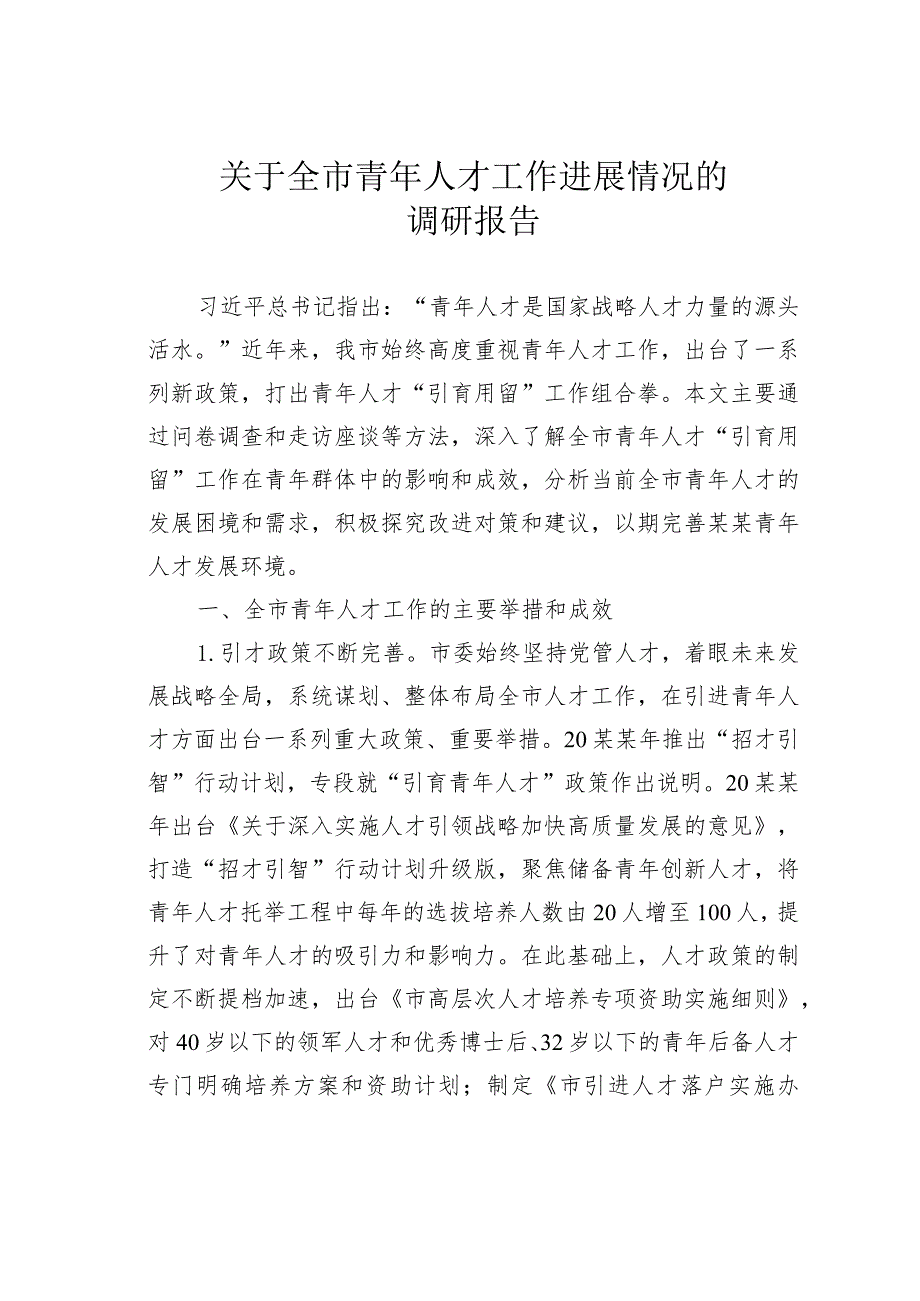 关于全市青年人才工作进展情况的
调研报告
习近平总书记指出：“青年人才是国家战略人才力量的源头
活水。”近年来，我市始终高度重视青年人才工作，出台了一系
列新政策，打出青年人才“引育用留”工作组合拳。本文主要通
过问卷调查和走访座谈等方法，深入了解全市青年人才“引育用
留”工作在青年群体中的影响和成效，分析当前全市青年人才的
发展困境和需求，积极探究改进对策和建议，以期完善某某青年
人才发展环境。
一、全市青年人才工作的主要举措和成效
1. 引才政策不断完善。市委始终坚持党管人才，着眼未来发
展战略全局，系统谋划、整体布局全市人才工作，在引进青年人
才方面出台一系列重大政策、重要举措。20 某某年推出“招才引
智”行动计划，专段就“引育青年人才”政策作出说明。20 某某
年出台《关于深入实施人才引领战略加快高质量发展的意见》，
打造“招才引智”行动计划升级版，聚焦储备青年创新人才，将
青年人才托举工程中每年的选拔培养人数由 20 人增至 100 人，提
升了对青年人才的吸引力和影响力。在此基础上，人才政策的制
定不断提档加速，出台《市高层次人才培养专项资助实施细则》，
对 40 岁以下的领军人才和优秀博士后、32 岁以下的青年后备人才
专门明确培养方案和资助计划；制定《市引进人才落户实施办